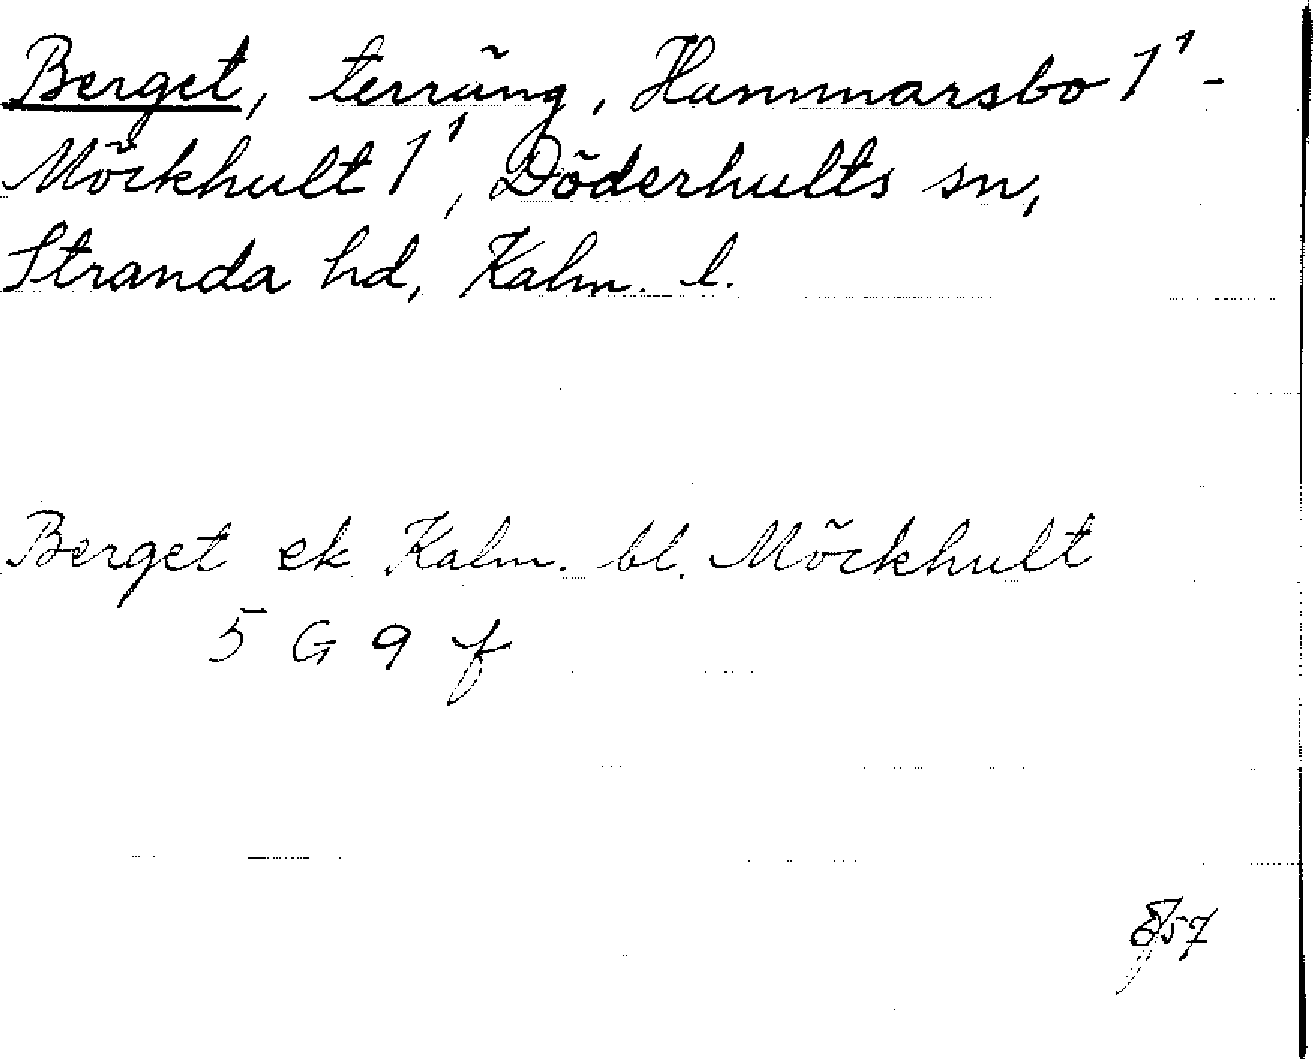 Berget, terräng, Hammarsbo 1¹ -
Möckhult 1¹, Döderhults sn,
Stranda hd, Kalm. l.
Berget ek Kalm. bl. Möckhult
5 G 9 f